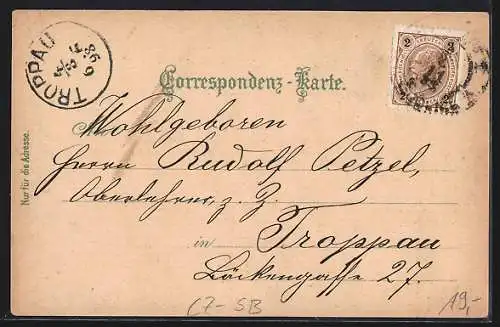 TROPPAU
98
6
2
Correspondenz - Karte.
Nur für die Adresse.
Wohlgeboren
Herrn Rudolf Petzel,
Oberlehrer, z. Z.
in Troppau
Böckengasse 27.
CZ-SB
19,-